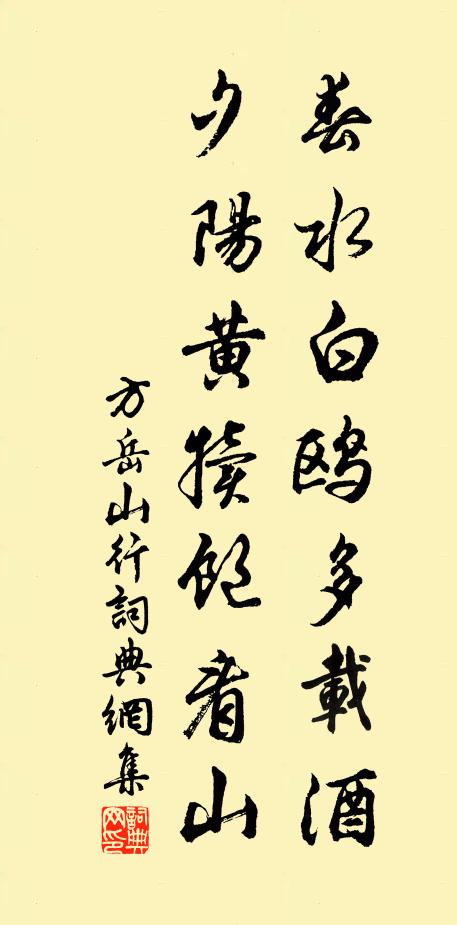 春水白鸥多載酒
夕陽黄犢飽看山
方岳山行詞典網集
詞典
网印